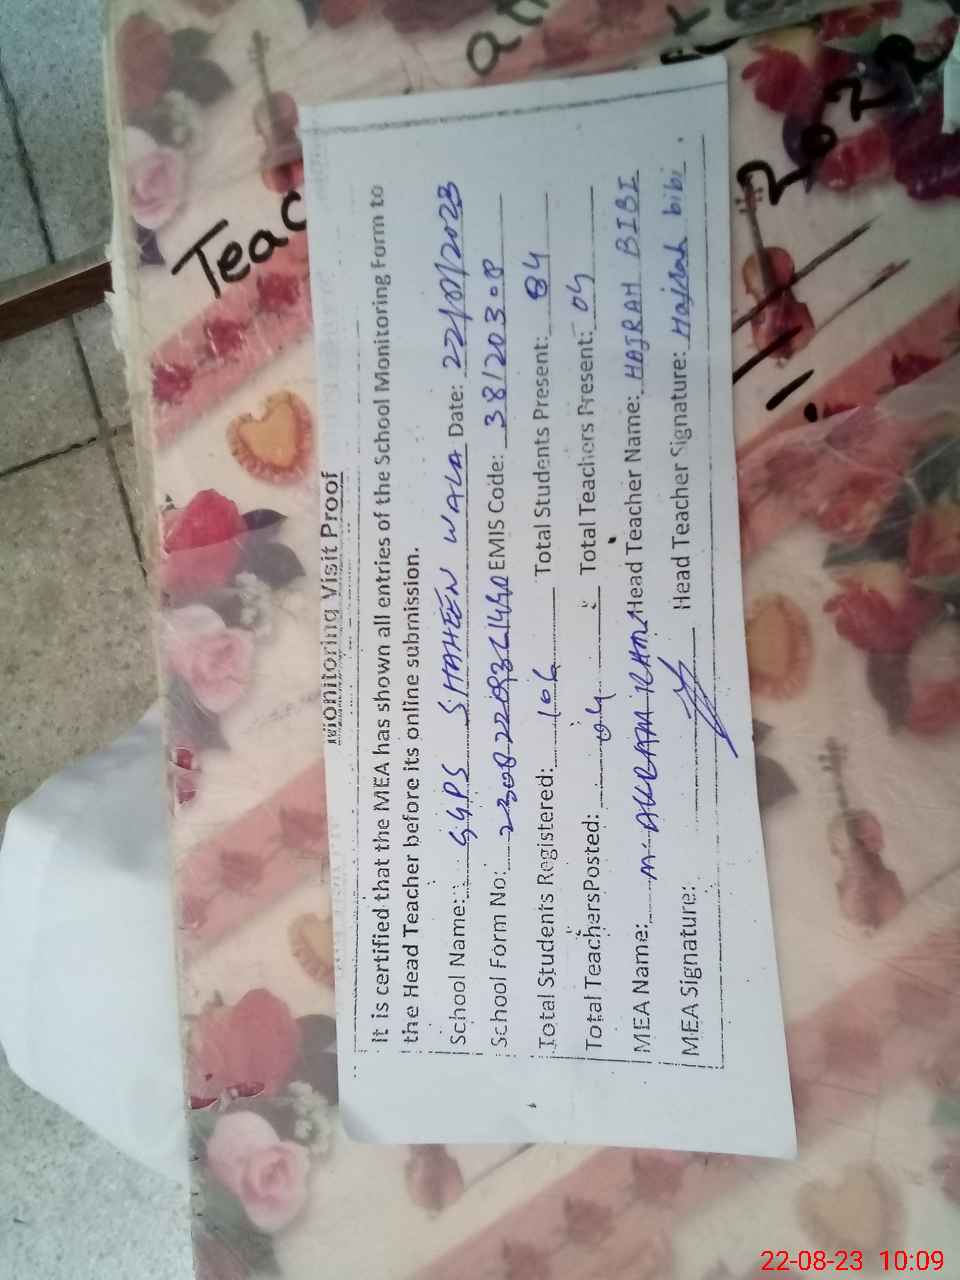 Monitoring Visit Proof
It is certified that the MEA has shown all entries of the School Monitoring Form to
the Head Teacher before its online submission.
School Name: GGPS SHAHEEN WALA Date: 22/08/2023
School Form No: EMIS Code: 38120308
Total Students Registered: 106 Total Students Present: 84
Total TeachersPosted: 04 Total Teachers Present: 04
MEA Name: M. AKRAM Head Teacher Name: HAJRAH BIBI
MEA Signature: Head Teacher Signature: Hajrah bibi
Teac
202
22-08-23 10:09